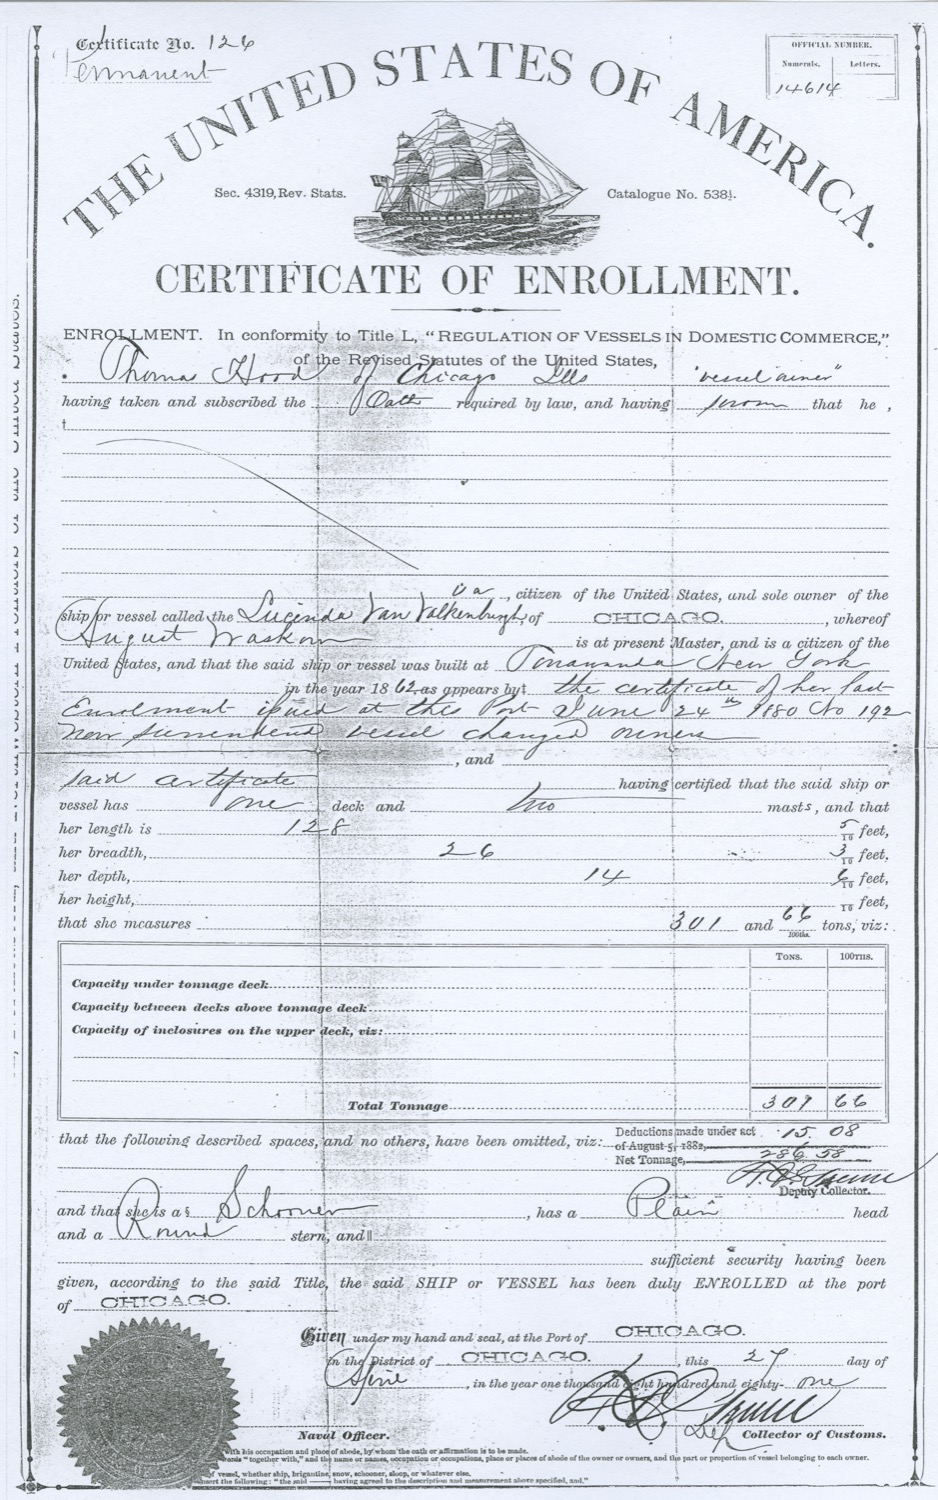 Certificate No. 126
Permanent
OFFICIAL NUMBER.
Numerals. Letters.
14614
THE UNITED STATES OF AMERICA.
Sec. 4319, Rev. Stats.
Catalogue No. 538½.
CERTIFICATE OF ENROLLMENT.
ENROLLMENT. In conformity to Title L, "REGULATION OF VESSELS IN DOMESTIC COMMERCE,"
of the Revised Statutes of the United States,
Thomas Hood of Chicago Ills "vessel owner"
having taken and subscribed the Oath required by law, and having sworn that he,
is a, citizen of the United States, and sole owner of the
ship or vessel called the Lucinda Van Valkenburgh, of CHICAGO., whereof
August Waskom is at present Master, and is a citizen of the
United States, and that the said ship or vessel was built at Tonawanda New York
in the year 1862, as appears by‡ the certificate of her last
Enrolment issued at this Port June 24th 1880 No 192
now surrendered vessel changed owners
, and
said certificate having certified that the said ship or
vessel has one deck and two masts, and that
her length is 128 5/10 feet,
her breadth, 26 3/10 feet,
her depth, 14 6/10 feet,
her height, /10 feet,
that she measures 301 and 66/100ths. tons, viz:
TONS. 100THS.
Capacity under tonnage deck
Capacity between decks above tonnage deck
Capacity of inclosures on the upper deck, viz:
Total Tonnage 301 66
that the following described spaces, and no others, have been omitted, viz: Deductions made under act 15. 08
of August 5, 1882,
Net Tonnage, 286.58
Deputy Collector.
and that she is a § Schooner, has a Plain head
and a Round stern, and ‖
sufficient security having been
given, according to the said Title, the said SHIP or VESSEL has been duly ENROLLED at the port
of CHICAGO.
Given under my hand and seal, at the Port of CHICAGO.
in the District of CHICAGO., this 27 day of
, in the year one thousand eight hundred and eighty- one
Dep
Naval Officer. Collector of Customs.
with his occupation and place of abode, by whom the oath or affirmation is to be made.
"together with," and the name or names, occupation or occupations, place or places of abode of the owner or owners, and the part or proportion of vessel belonging to each owner.
of vessel, whether ship, brigantine, snow, schooner, sloop, or whatever else.
insert the following: "the said —— having agreed to the description and measurement above specified, and."